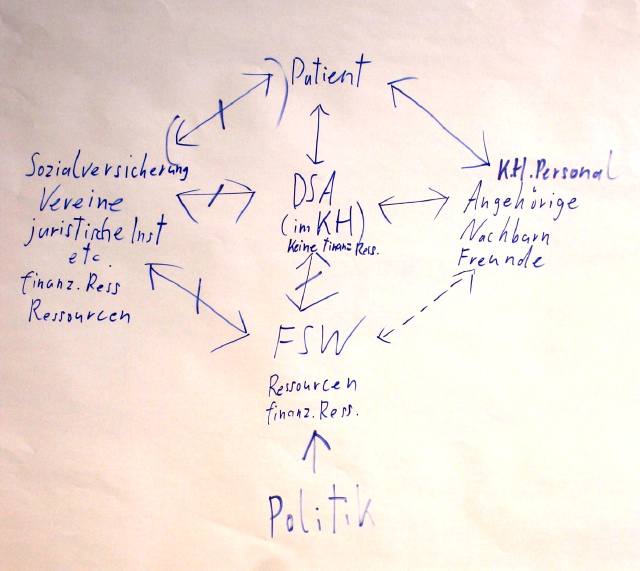 Patient
Sozialversicherung
Vereine
juristische Inst
etc.
finanz. Ress
Ressourcen
DSA
(im KH)
Keine finanz Ress.
KH. Personal
Angehörige
Nachbarn
Freunde
FSW
Ressourcen
finanz. Ress.
Politik